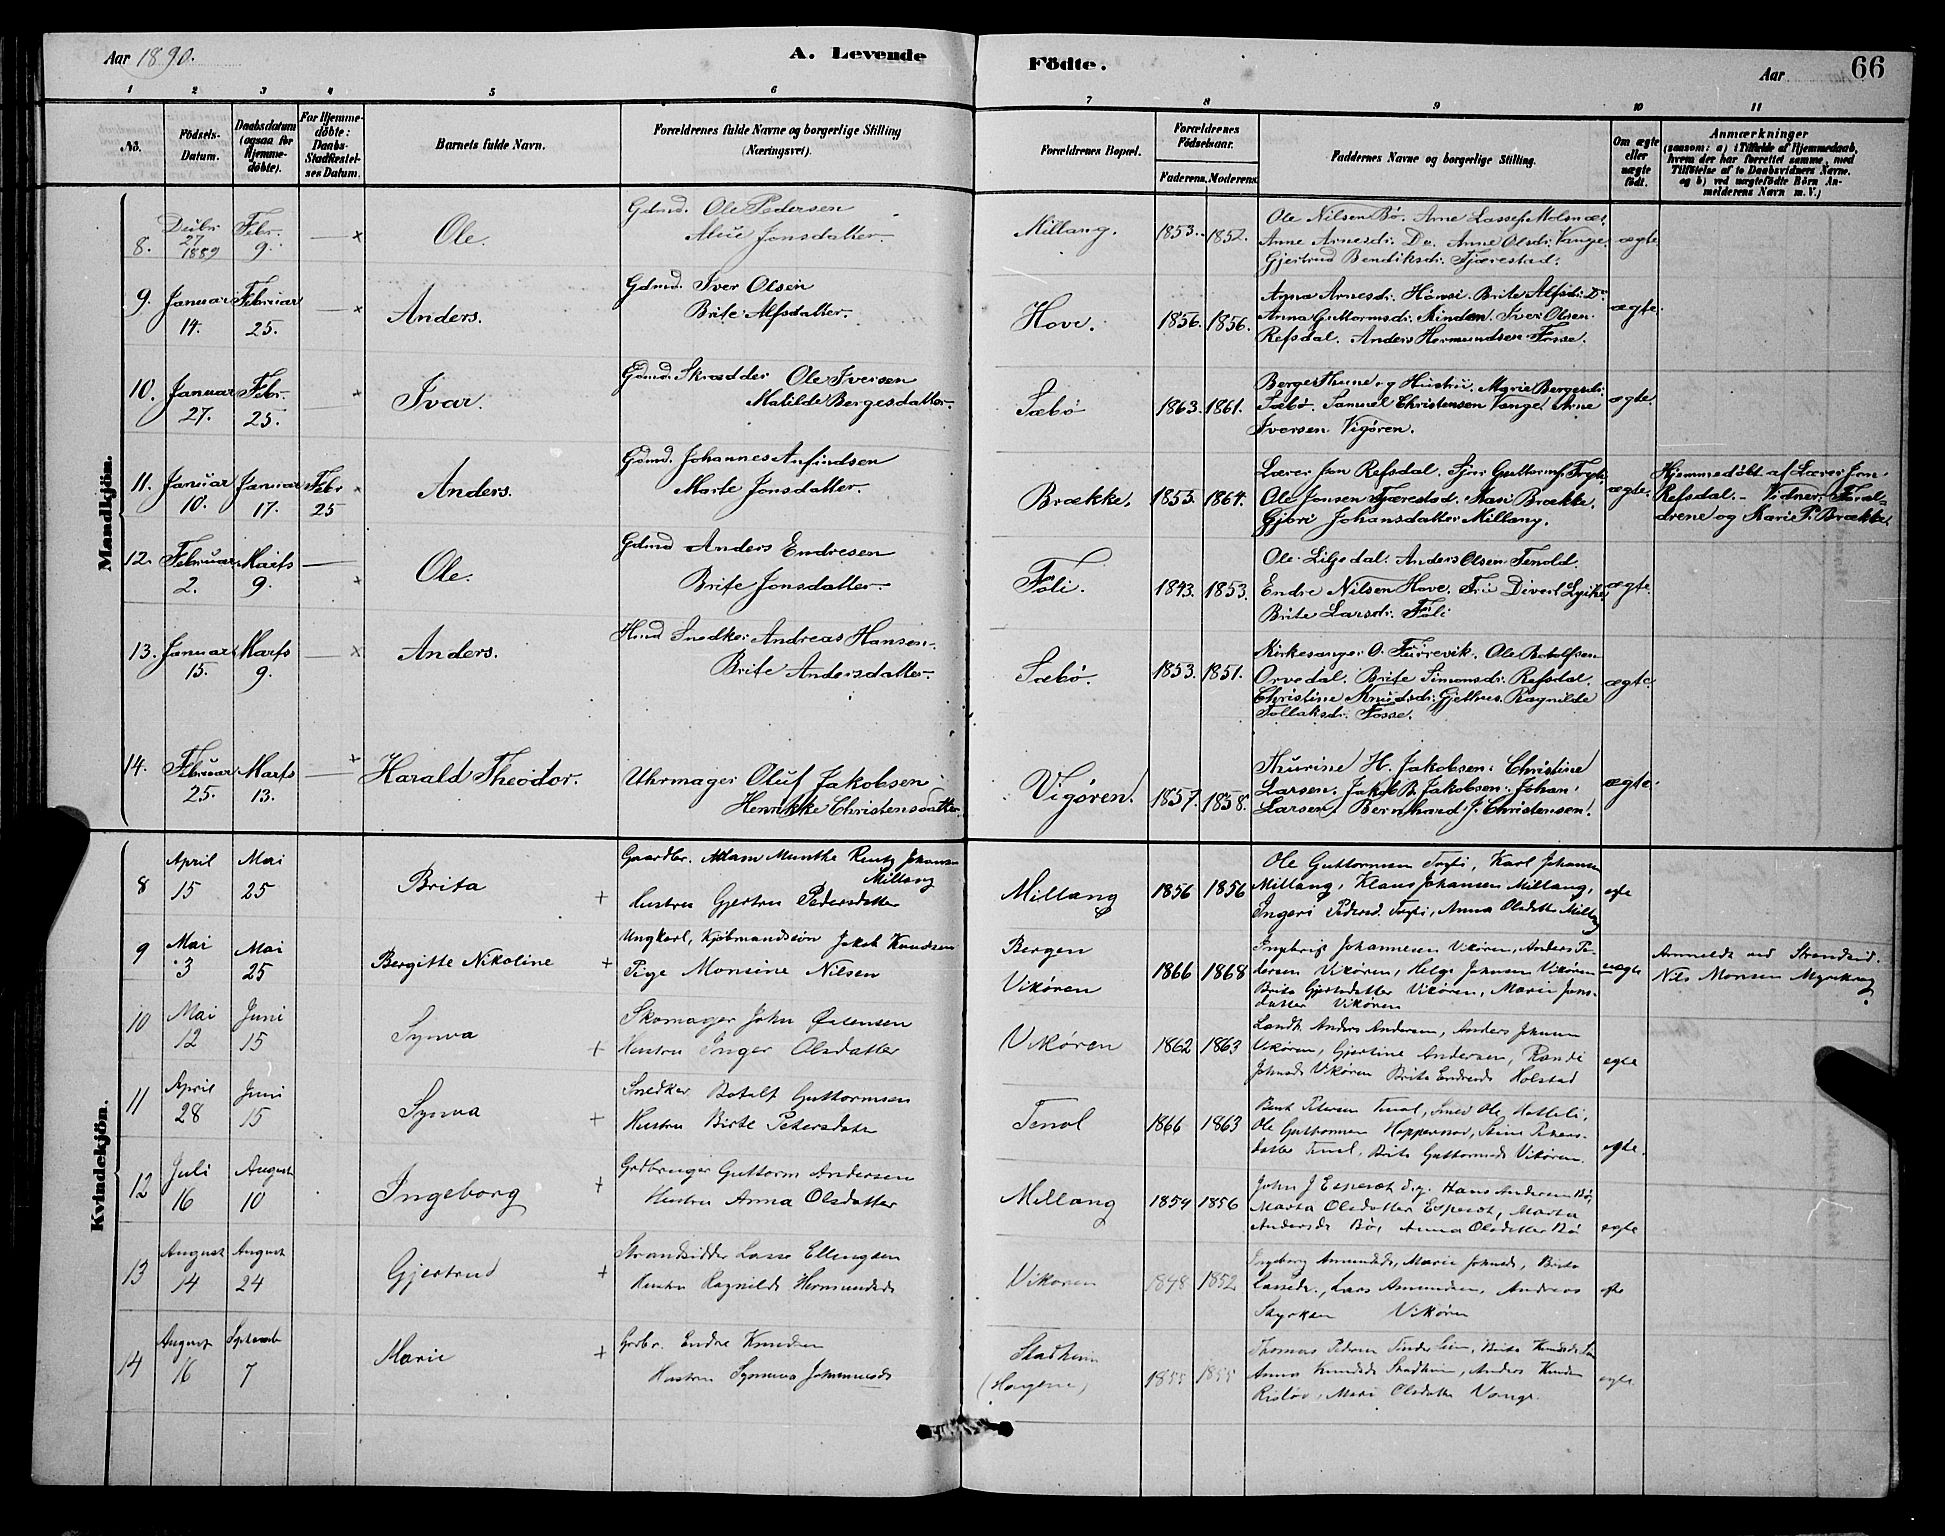 Aar 1890.
A. Levende
Födte.
Aar
66
1 2 3 4 5 6 7 8 9 10 11
No.
Födsels-Datum.
Daabsdatum (ogsaa for Hjemme-döbte).
For Hjemme-döbte: Daabs-Stadfæstel-ses Datum.
Barnets fulde Navn.
Forældrenes fulde Navne og borgerlige Stilling (Næringsvei).
Forældrenes Bopæl.
Forældrenes Födselsaar.
Faderens. Moderens.
Faddernes Navne og borgerlige Stilling.
Om ægte eller uægte födt.
Anmærkninger
(saasom: a) i Tilfælde af Hjemmedaab, hvem der har forrettet samme, med Tilföielse af to Daabsvidners Navne. og b) ved uægtefödte Börn An-melderens Navn m. V.)
Mandkjön.
8. Decbr 27 1889 Febr. 9. Ole.
Gdmd. Ole Pedersen
Jonsdatter.
Millang. 1853. 1852.
Ole Nilsen Bö. Arne Lasses. Molsnæs
Anne Arnesdr. Do. Anne Olsdr. Vange
Gjertrud Bendiksdr. Tjærestad.
ægte
9. Januar 14. Februar 25. Anders.
Gdmd. Iver Olsen
Brite Alfsdatter.
Hove. 1856. 1856.
Anna Arnesdr. Hönsi. Brite Alfsdr. Do.
Anna Guttormsdr. Rinden. Iver Olsen
Refsdal. Anders Hermundsen Fosse.
ægte.
10. Januar 27. Febr. 25. Ivar.
Gdmd. Skrædder Ole Iversen
Matilde Bergesdatter.
Sæbö 1863. 1861.
Berge Thune og Hustru. Marie Bergesdr.
Sæbö. Samuel Christensen Vange. Arne
Iversen Vigören.
ægte.
11. Januar 10. Januar 17. Febr 25 Anders.
Gdmd. Johannes Anfindsen
Marte Jonsdatter.
Brække. 1853. 1864.
Lærer Jon Refsdal. Sjur Guttormss. Tryti.
Ole Jonsen Tjærestad. Kari Brække.
Gjöri Johansdatter Millang.
ægte.
Hjemmedöbt af Lærer Jon
Refsdal. - Vidner: Foræl-
drene og Marie P. Brække.
12. Februar 2. Marts 9. Ole.
Gdmd Anders Endresen
Brite Jonsdatter.
Föli. 1843. 1853.
Ole Liljedal. Anders Olsen Tenold.
Endre Nilsen Hove.
Brite Larsdr. Föli
ægte.
13. Januar 15. Marts 9. Anders.
Hmd Snedker Andreas Hansen.
Brite Andersdatter.
Sæbö. 1853. 1851.
Kirkesanger O. Turrevik. Ole Botolfsen
Orvedal. Brite Simonsdr. Refsdal.
Christine Knudsdr. Gjethus. Ragnilde
Tollaksdr. Fosse.
ægte.
14. Februar 25. Marts 13. Harald Theodor.
Uhrmager Oluf Jakobsen
Henrikke Christensdatter.
Vigören. 1857. 1858.
Thurine H. Jakobsen. Christine
Larsen. Jakob A. Jakobsen. Johan
Larsen. Bernhard J. Christensen.
ægte.
Kvindekjön.
8 April 15 Mai 25 Brita
Gaardbr. Adam Munthe Rentz Johansen
Millang
Hustru Gjertru Pedersdatter
Millang 1856 1856
Ole Guttormsen Tryti, Karl Johansen
Millang, Klaus Johansen Millang,
Ingeri Pedersd. Tryti, Anna Olsdatter Millang
egte
9 Mai 3 Mai 25 Bergitte Nikoline
Ungkarl, Kjöbmandssön Jakob Knudsen
Pige Monsine Nilsen
Bergen
Vikören
1866 1868
Ingebrigt Johannesen Vikören, Anders Pe-
dersen Vikören, Helge Johnsen Vikören
Brita Gjertsdatter Vikören, Marie Jons-
datter Vikören
uegte
Anmeldt ved Strandsid.
Nils Monsen
10 Mai 12 Juni 15 Synva
Skomager John Östensen
Hustru Inger Olsdatter
Vikören 1862 1863
Landh. Anders Andersen, Anders Johnsen
Vikören, Gjertine Andersen, Randi
Johnsd. Vikören Brita Endresd. Holstad
egte
11 April 28 Juni 15 Synva
Snedker Botolf Guttormsen
Hustru Birte Petersdatter
Tenol 1866 1863
Bent Petersen Tenol, Smed Ole Hatteli,
Ole Guttormsen Hoppersnes, Stine Peters-
datter Tenol, Brite Guttormsd. Vikören.
egte.
12 Juli 16 August 10 Ingeborg
Grdbruger Guttorm Andersen
Hustru Anna Olsdatter
Millang 1859 1856
John J Espeset
Hans Andersen Bö,
Marta Olsdatter Espeset, Marta
Andersd. Bö, Anna Olsdatter Bö
egte
13 August 14 August 24 Gjertrud
Strandsidder Lasse Ellingsen
Hustru Ragnilde Hermundsd.
Vikören 1848 1852
Ingeborg Amundsd., Marie Johnsd., Brita
Lassed., Lars Amundsen, Andreas
Styrksen Vikören
egte
14 August 16 September 7 Marie
Grdbr. Endre Knudsen
Hustru Synneva Johannesd.
Stadheim
(Haugene)
1855 1855
Thomas Pedersen Tenderlien, Brita Knudsd.
Anna Knudsd. Stadheim, Anders Knudsen
Risløv, Mari Olsdatter Vange.
egte